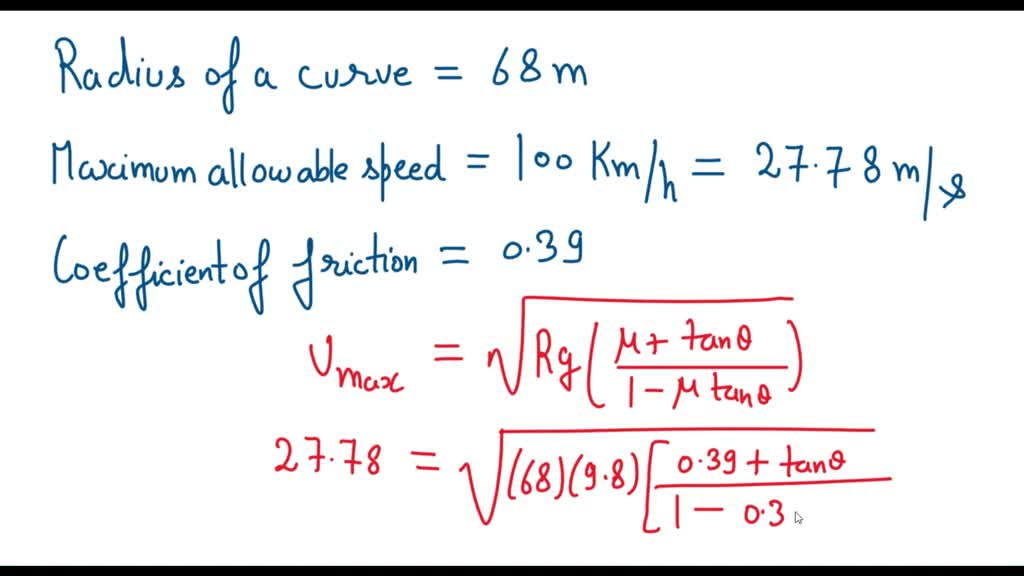 Radius of a curve = 68 m
Maximum allowable speed = 100 Km/h = 27.78 m/s
Coefficient of friction = 0.39
υmax = √Rg(μ + tanθ / 1 - μ tanθ)
27.78 = √(68)(9.8)[0.39 + tanθ / 1 - 0.3